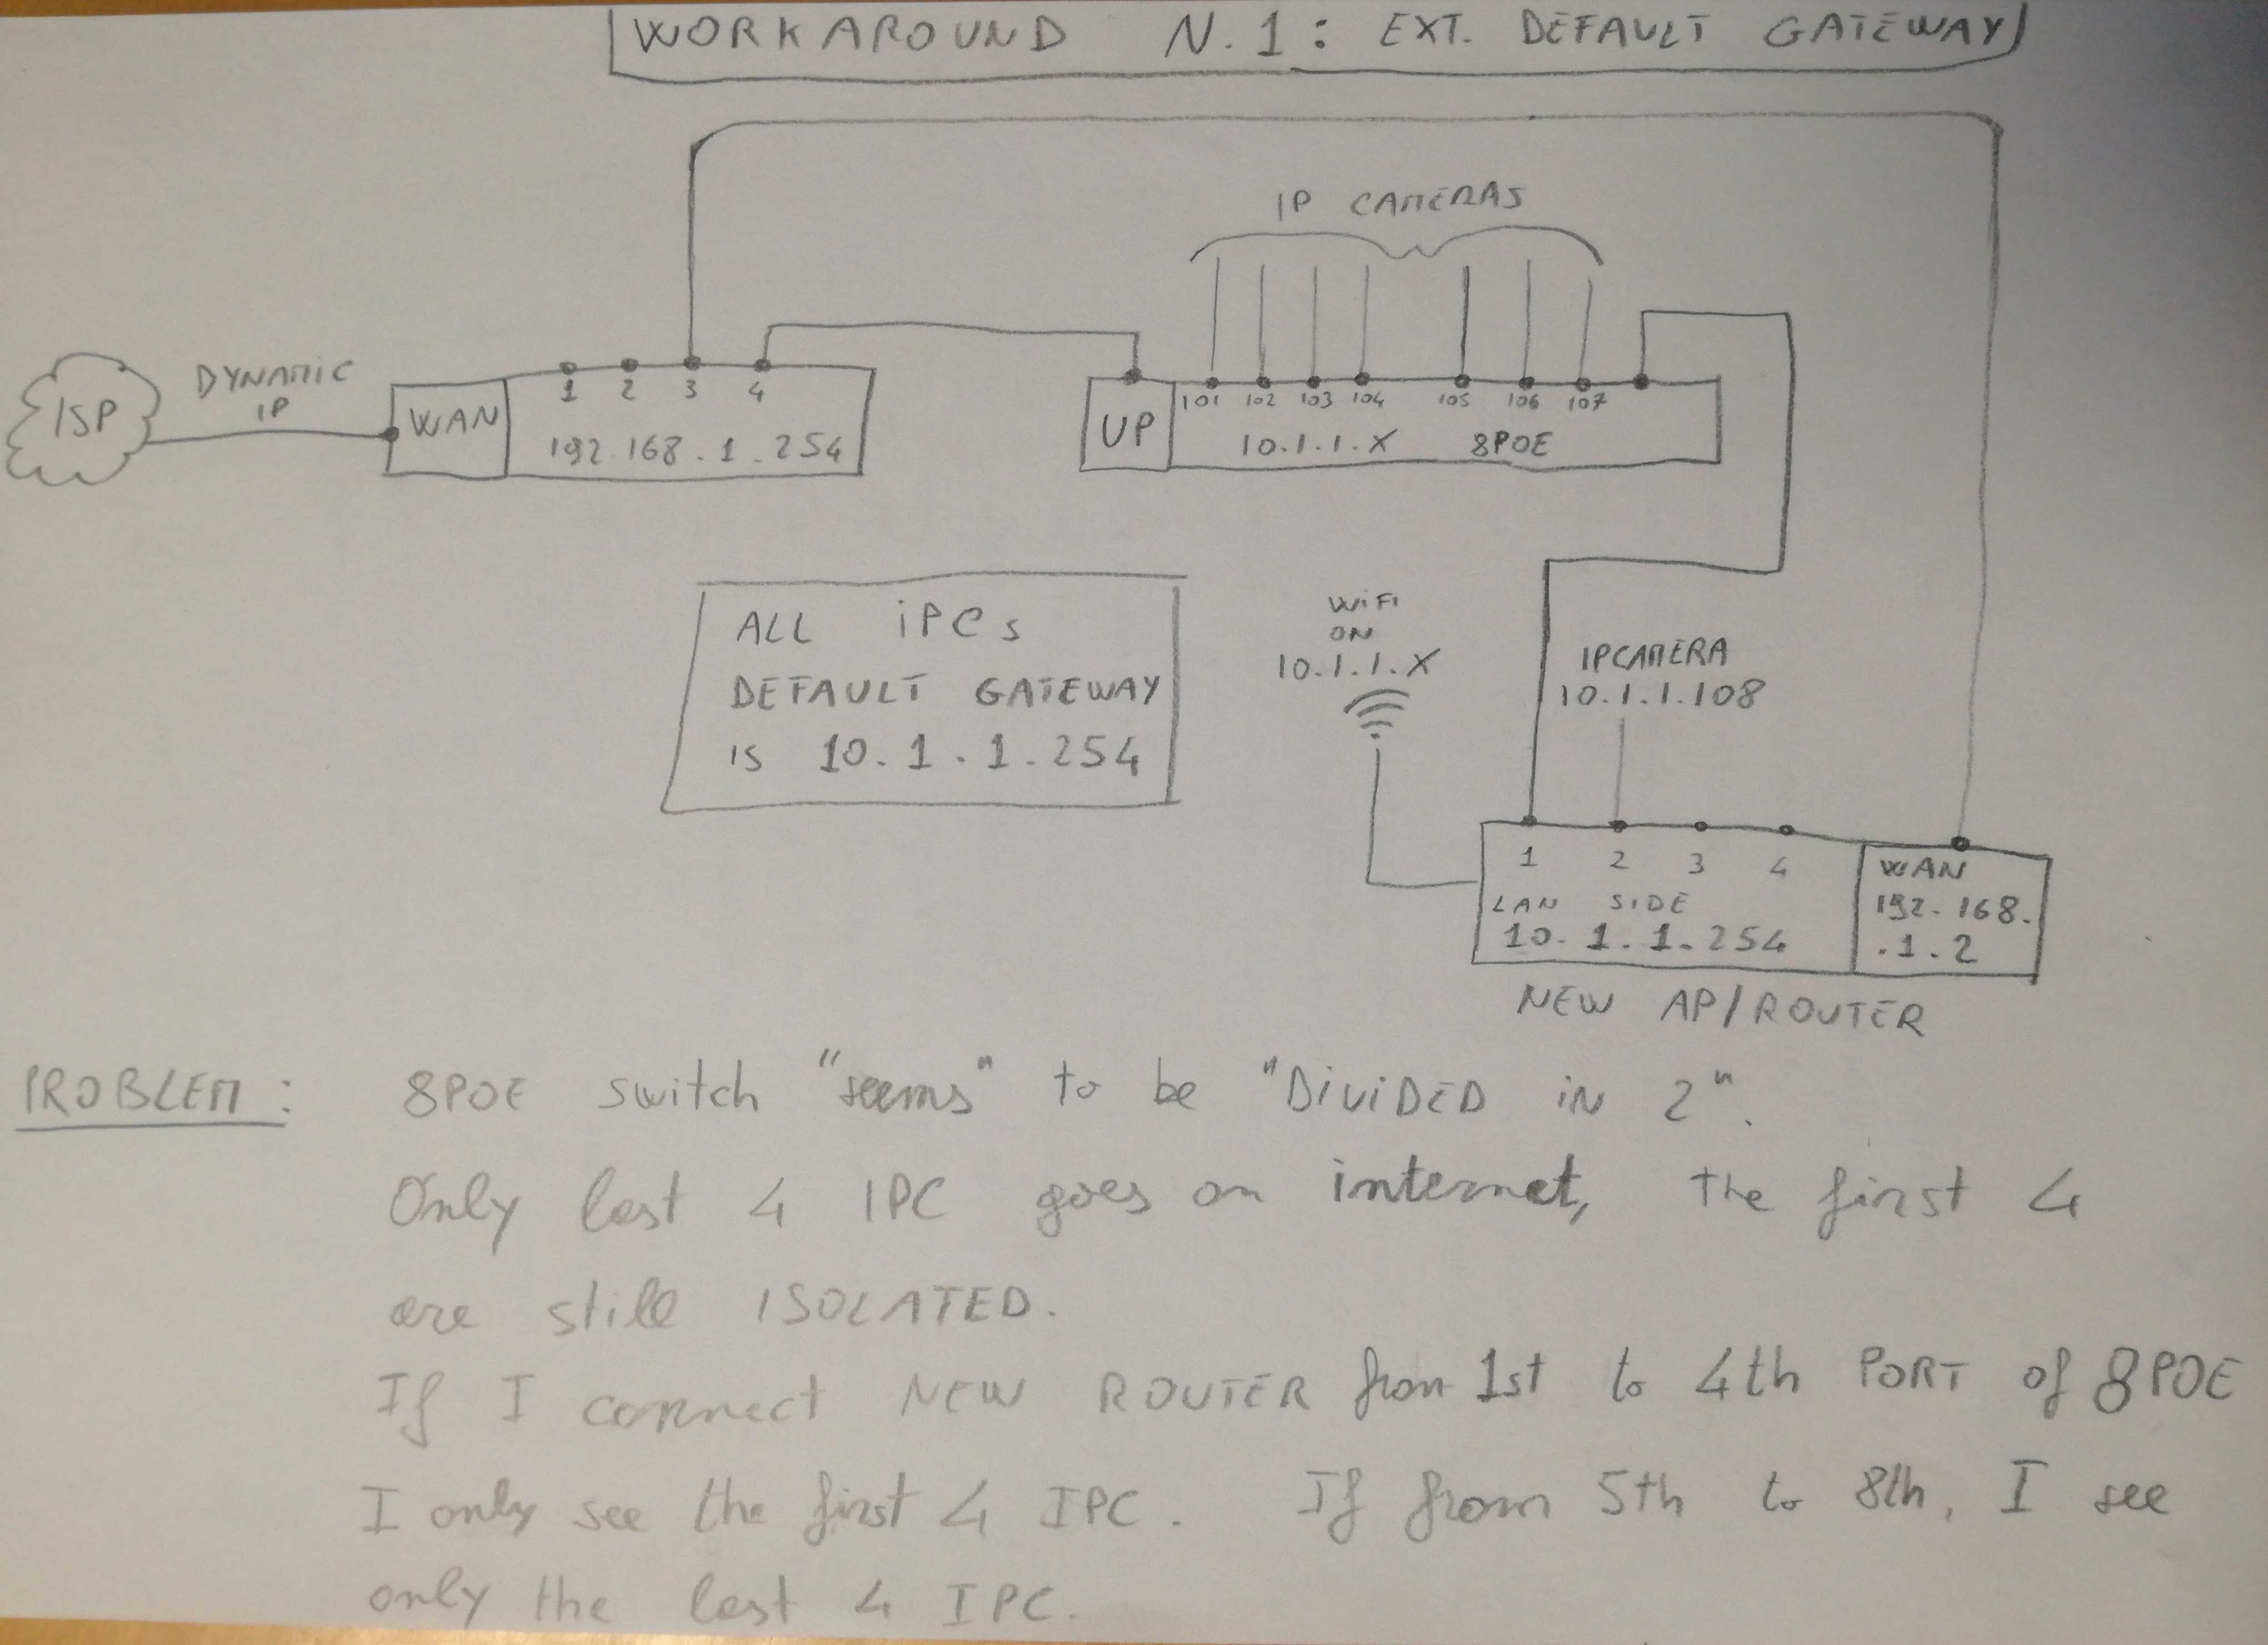 WORKAROUND N.1: EXT. DEFAULT GATEWAY
IP CAMERAS
ISP
DYNAMIC
IP
WAN
1 2 3 4
192.168.1.254
UP
101 102 103 104 105 106 107
10.1.1.X 8POE
ALL iPCs
DEFAULT GATEWAY
is 10.1.1.254
WiFi
ON
10.1.1.X
IPCAMERA
10.1.1.108
1 2 3 4
LAN SIDE
10.1.1.254
WAN
192.168.
.1.2
NEW AP/ROUTER
PROBLEM: 8POE switch "seems" to be "DiViDED iN 2".
Only last 4 IPC goes on internet, the first 4
are still ISOLATED.
If I connect NEW ROUTER from 1st to 4th PORT of 8POE
I only see the first 4 IPC. If from 5th to 8th, I see
only the last 4 IPC.